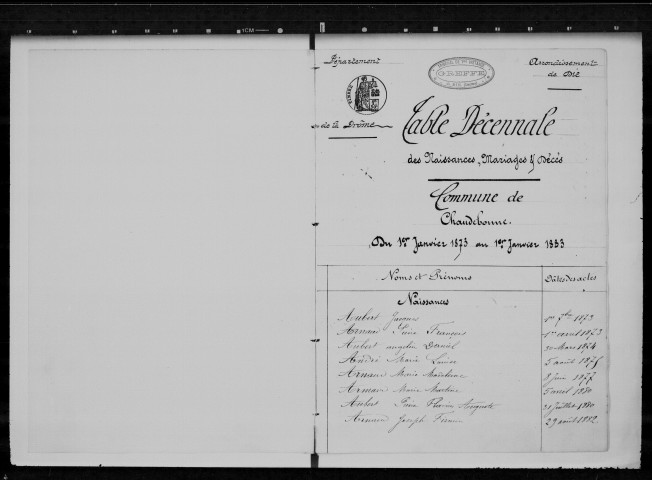 Département
Arrondissement
de Die
GREFFE
de la Drôme
Table Décennale
des Naissances, Mariages & Décés
Commune de
Chaudebonne.
Du 1er Janvier 1873 au 1er Janvier 1883
Noms et Prénoms
Dates des actes
Naissances
Aubert Jacques 1873
Arnaud Pierre François 1er avril 1873
Aubert Daniel 20 Mars 1874
André Marie Louise 5 août 1875
Arnaud Marie 8 Juin 1877
Arnaud Marie 5 avril 1880
Aubert Pierre Florin Auguste 31 Juillet 1880
Arnaud Joseph 29 août 1882